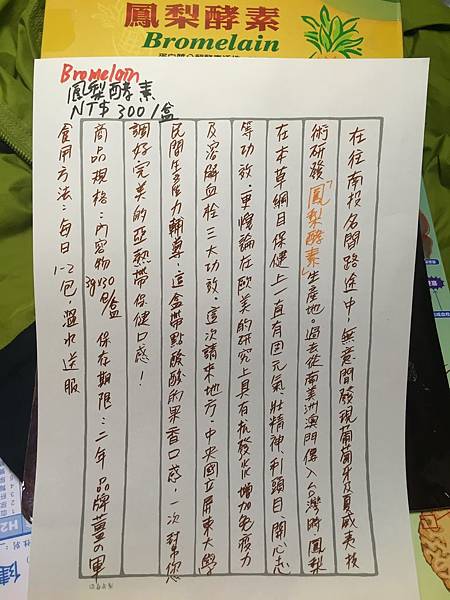 鳳梨酵素
Bromelain
Bromelain
鳳梨酵素
NT$300/盒
在往南投名間路途中!無意間發現葡萄牙夏威夷技
術研發「鳳梨酵素」生產地。過去從南美洲澳門傳入台灣時,鳳梨
在本草綱目保健上一直有固元氣、壯精神、利頭目、開心志
等功效。更慢論在歐美的研究上具有抗發炎、增加免疫力
及溶解血栓三大功效。這次請來地方、中央國立屏東大學
民間生產力輔導,這盒帶點酸酸的果香口感,一次幫您
調好完美的亞熱帶保健口感!
商品規格:內容物3gx30包/盒 保存期限:二年 品牌薑の軍
食用方法:每日1-2包,溫水送服